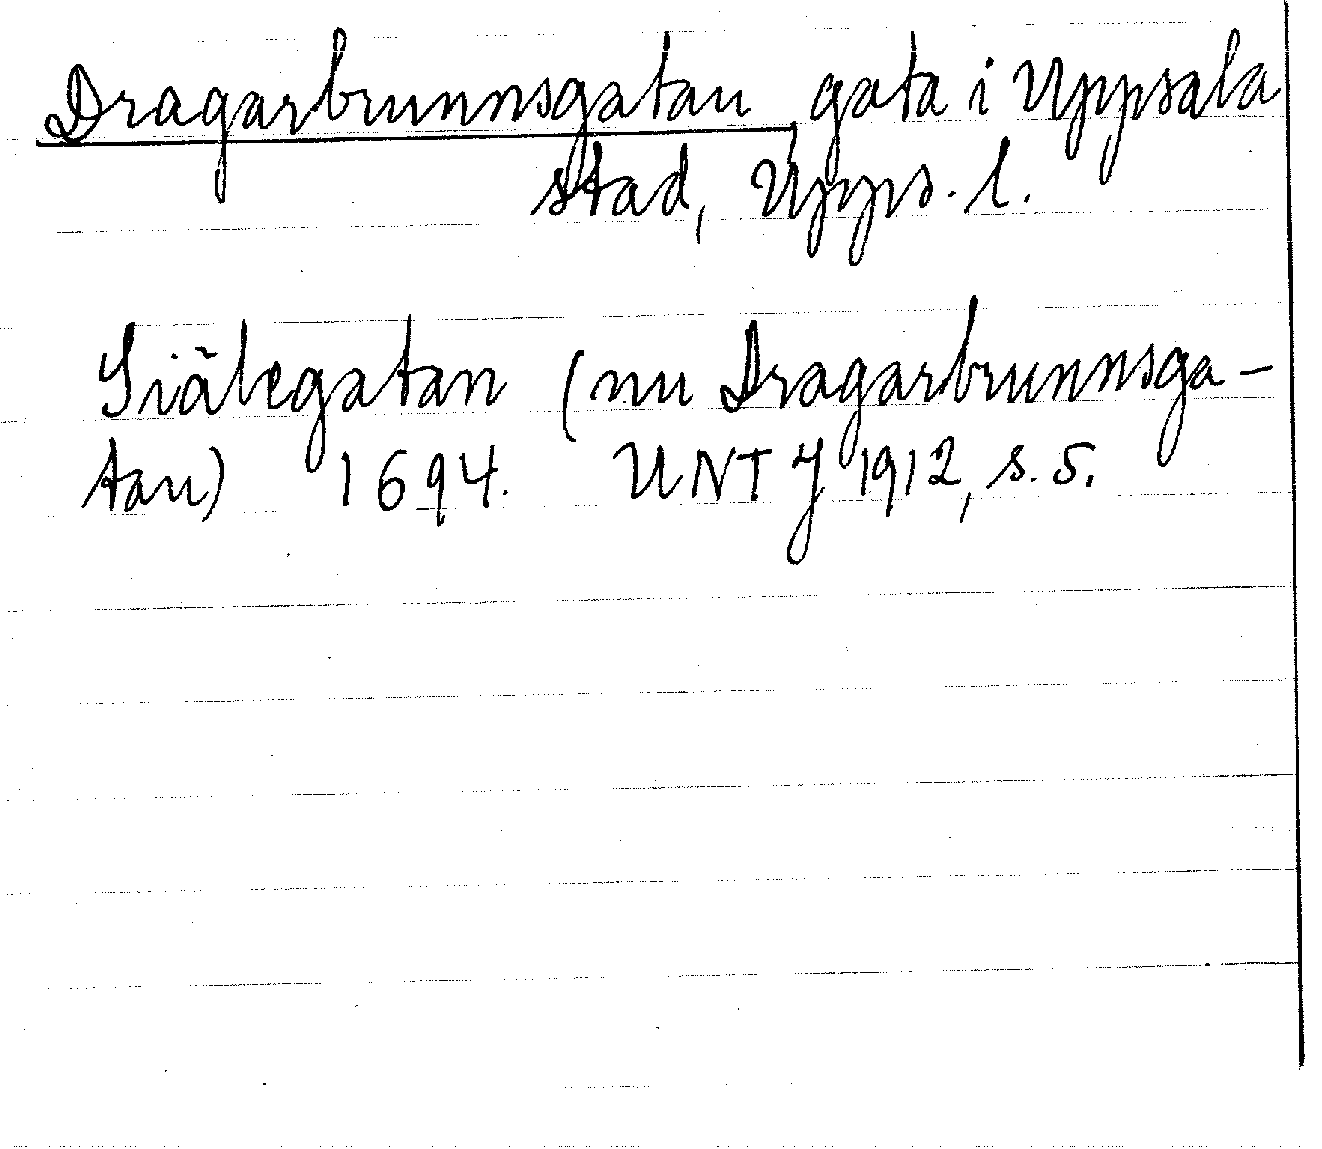 Dragarbrunnsgatan, gata i Uppsala
stad, Upps. l.
Siälegatan (nu Dragarbrunnsga-
tan) 1694. UNT J 1912, s. 5.